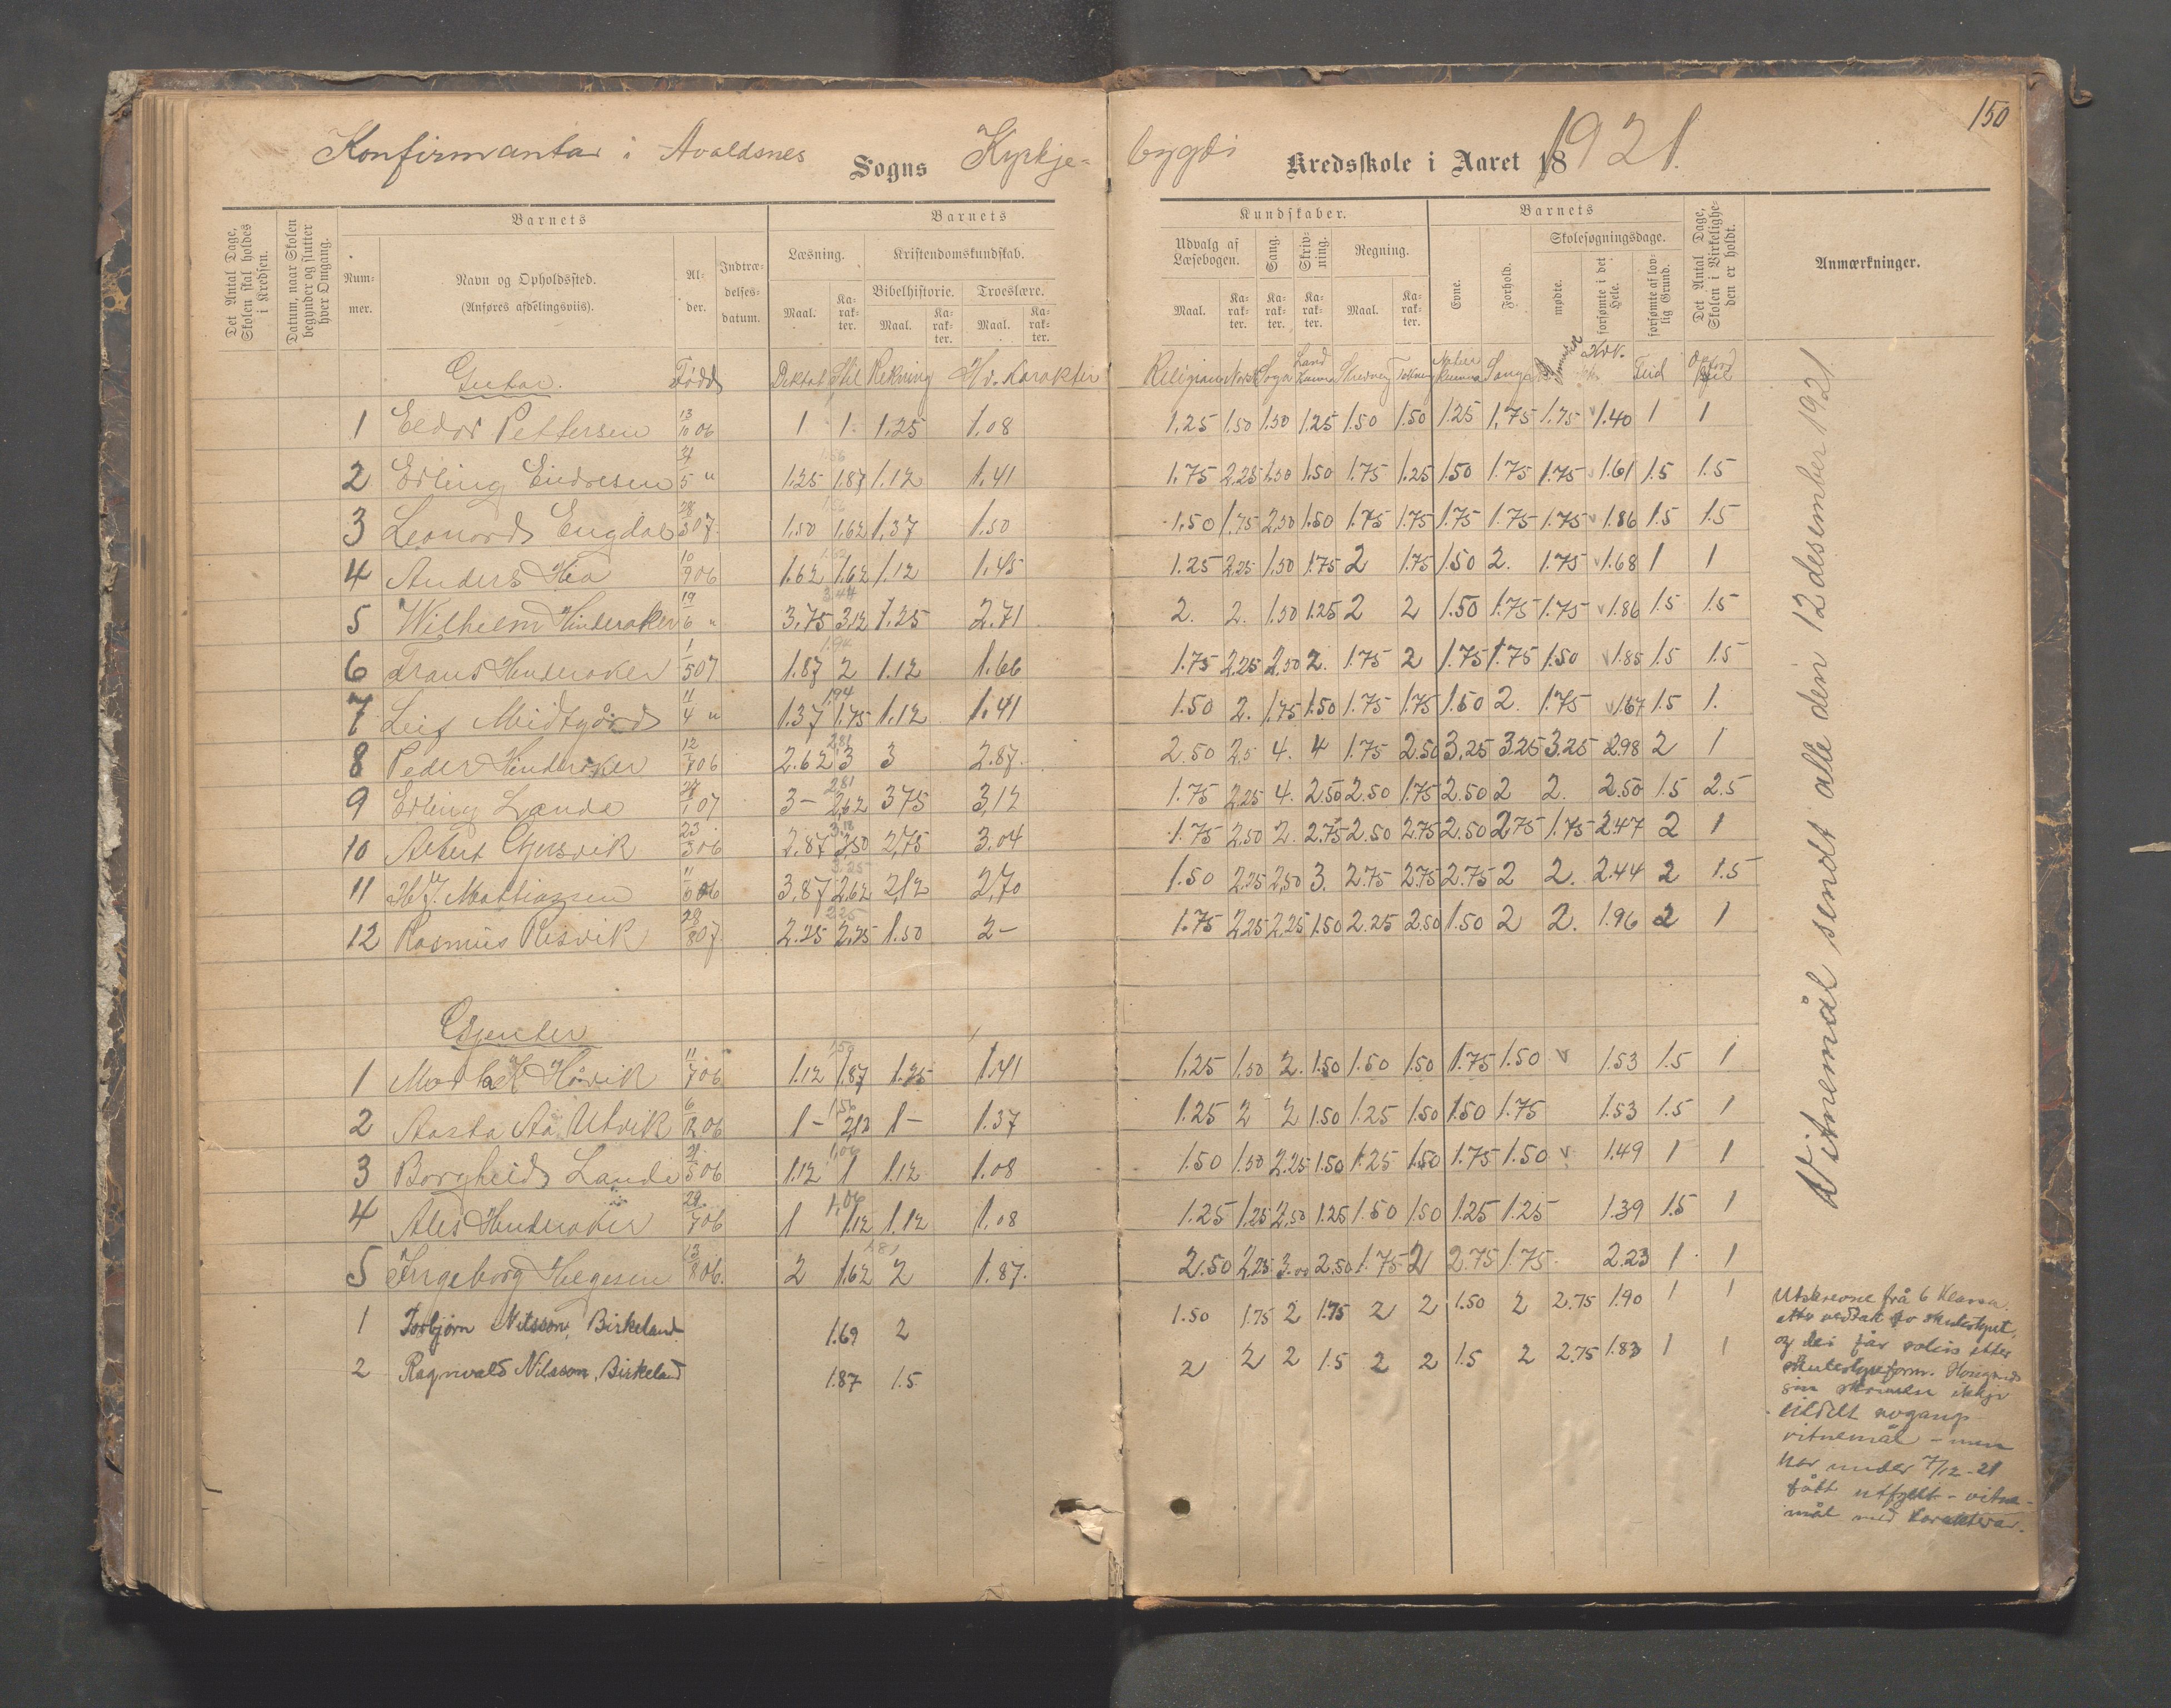 150
Konfirmantar i Avaldsnes Sogns Kyrkje- bygdi Kredsskole i Aaret 18 1921.
Det Antal Dage, Skolen skal holdes i Kredsen.
Datum, naar Skolen begynder og slutter hver Omgang.
Barnets
Nummer.
Navn og Opholdssted.
(Anføres afdelingsviis).
Alder.
Indtrædelsesdatum.
Barnets
Læsning.
Kristendomskundskab.
Bibelhistorie.
Troeslære.
Maal.
Karakter.
Maal.
Karakter.
Maal.
Karakter.
Kundskaber.
Udvalg af Læsebogen.
Sang.
Skrivning.
Regning.
Maal.
Karakter.
Karakter.
Karakter.
Maal.
Karakter.
Barnets
Evne.
Forhold.
Skolesøgningsdage.
mødte.
forsømte i det Hele.
forsømte af lovlig Grund.
Det Antal Dage, Skolen i Virkeligheden er holdt.
Anmærkninger.
Gutar. Fødd Diktat Stil Rekning Hv. Karakter Religion Norsk Soga Land kunna Skrivning Tekning Natur kunna Song Hvk. Flid
1 Eldar Pettersen 13/10 06 1 1 1.25 1.08 1.25 1.50 1.50 1.25 1.50 1.50 1.25 1.75 1.75 v 1.40 1 1
2 Erling Eidresen 5 " 1.56 1.25 1.87 1.12 1.41 1.75 2.25 1.50 1.50 1.75 1.25 1.50 1.75 1.75 v 1.61 1.5 1.5
3 Leonard Engdal 28/3 07. 1.50 1.62 1.37 1.50 1.50 1.75 2.50 1.50 1.75 1.75 1.75 1.75 1.75 v 1.86 1.5 1.5
4 Anders Hea 10/9 06 1.62 1.62 1.12 1.45 1.25 2.25 1.50 1.75 2 1.75 1.50 2. 1.75 v 1.68 1 1
5 Wilhelm Hinderaker 19/6 " 3.44 3.75 3.12 1.25 2.71 2. 2. 1.50 1.25 2 2 1.50 1.75 1.75 v 1.86 1.5 1.5
6 Frans Hinderaker 1/5 07 1.94 1.87 2 1.12 1.66 1.75 2.25 2.50 2. 1.75 2 1.75 1.75 1.50 v 1.85 1.5 1.5
7 Leif Midtgård 11/4 " 1.37 1.75 1.12 1.41 1.50 2. 1.75 1.50 1.75 1.75 1.50 2. 1.75 v 1.67 1.5 1.
8 Peder Hinderaker 12/7 06 2.81 2.62 3 3 2.87. 2.50 2.5 4. 4 1.75 2.50 3.25 3.25 3.25 2.98 2 1
9 Erling Lande 1 07 2.81 3- 2.62 3.75 3,12 1.75 2.25 4. 2.50 2.50 1.75 2.50 2 2. 2.50 1.5 2.5
10 Albert Gjersvik 23/3 06 3.18 2.87 3.50 2,75 3.04 1.75 2.50 2. 2.75 2.50 2.75 2.50 2.75 1.75 2.47 2 1
11 Mattiassen 11/6 06 3.25 3,87 2.62 2,12 2,70 1.50 2.25 2.50 3. 2.75 2.75 2.75 2 2. 2.44 2 1.5
12 Rasmus Risvik 28/8 07 2.25 2.25 2.25 1.50 2- 1.75 2.25 2.25 1.50 2.25 2.50 1.50 2 2. 1.96 2 1
Gjenter
1 Håvik 11/7 06 1.50 1.12 1.87 1.25 1.41 1.25 1.50 2. 1.50 1.50 1.50 1.75 1.50 v 1.53 1.5 1
2 Aasta Aa. Utvik 6/12 06 1.56 1- 2,12 1- 1.37 1.25 2 2 1.50 1.25 1.50 1.50 1.75 1.53 1.5 1
3 Borgheid Lande 5 06 1.06 1.12 1 1.12 1.08 1.50 1.50 2.25 1.50 1.25 1.50 1.75 1.50 v 1.49 1 1
4 Alis Hinderaker 29/7 06 1,06 1 1.12 1.12 1.08 1.25 1.25 2.50 1.25 1.50 1.50 1.25 1.25 1.39 1.5 1
5 Ingeborg Helgesen 13/8 06. 1.81 2 1.62 2 1.87. 2.50 2.25 3.00 2.50 1.75 2 2.75 1.75 2.23 1 1
1 Torbjørn Nilsson, Birkeland 1.69 2 1.50 1.75 2 1.75 2 2 1.50 2 2.75 1.90 1 1
2 Ragnvald Nilsson, Birkeland 1.87 1.5 2 2 2 1.5 2 2 1.5 2 2.75 1.83 1 1
Vitnemål sendt alle den 12 desember 1921
Utskrevne frå 6 klassa.
etter vedtak av skulestyret,
og dei får etter
skulestyreform.
ikkje
tildelt avgangs-
vitnemål - men
har under 7/12-21
fått utfyllt - vitne-
mål med karakterar.